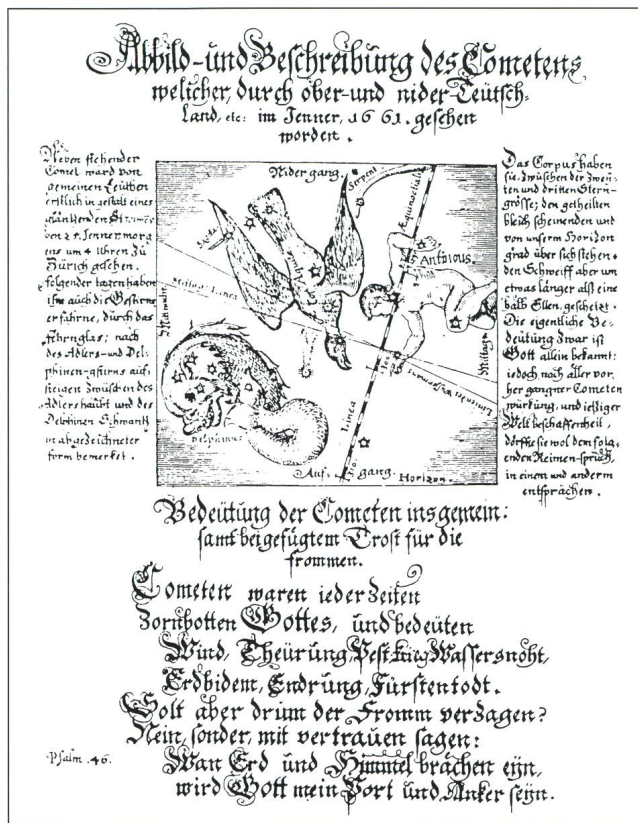 Abbild- und Beschreibung des Cometens,
welicher, durch ober- und nider-Teütsch-
Land, etc: im Jenner, 1661. gesehen
worden.
Neben stehender
Comet ward von
gemeinen Leüthen
erstlich in gestalt eines
gläntzenden
von 24. Jennermorg
ens um 4 Uhren Zů
Zürich gesehen.
folgender tagen haben
ihne auch die Gestirns
erfahrne, durch das
fehrnglas; nach
des Adlers- und Del-
phinen-gstirns auf,
steigen Zwüschen des
Adlers haubt und des
Delphinen Schwantz
in abgezeichneter
form bemerket.
Nider gang.
Serpent
Æquinoctialis
Antinous.
Aquila
Mittags Linea
Mitternacht
Mittag
Delphinus
Linea
Auf- gang. Horizon.
Das Corpus haben
sie, Zwüschen der Zwey-
ten und dritten Stern-
grösse; den getheilten
bleich scheinenden und
von unserm Horizon
grad über sich stehen-
den Schweiff aber um
etwas länger alß eine
halb Ellen, geschetzt.
Die eigentliche Be-
deütung Zwar ist
Gott allein bekannt;
iedoch nach aller vor
her gangner Cometen
würkung, und ietziger
Welt beschaffenheit,
dörffte sie wol dem folg-
enden Reimen-sprüch,
in einem und anderm
entsprächen.
Bedeütung der Cometen ins gemein:
samt beigefügtem Trost für die
frommen.
Cometen waren ieder Zeiten
Zornbotten Gottes, und bedeüten
Wind, Theürung, Pest, Krieg, Wassersnöht,
Erdbidem, Endrung, Fürstentodt.
Solt aber drum der Fromm verzagen?
Nein, sonder, mit vertrauen sagen:
Psalm. 46.
Wan Erd und Himmel brächen eyn,
wird Gott mein Port und Anker seyn.